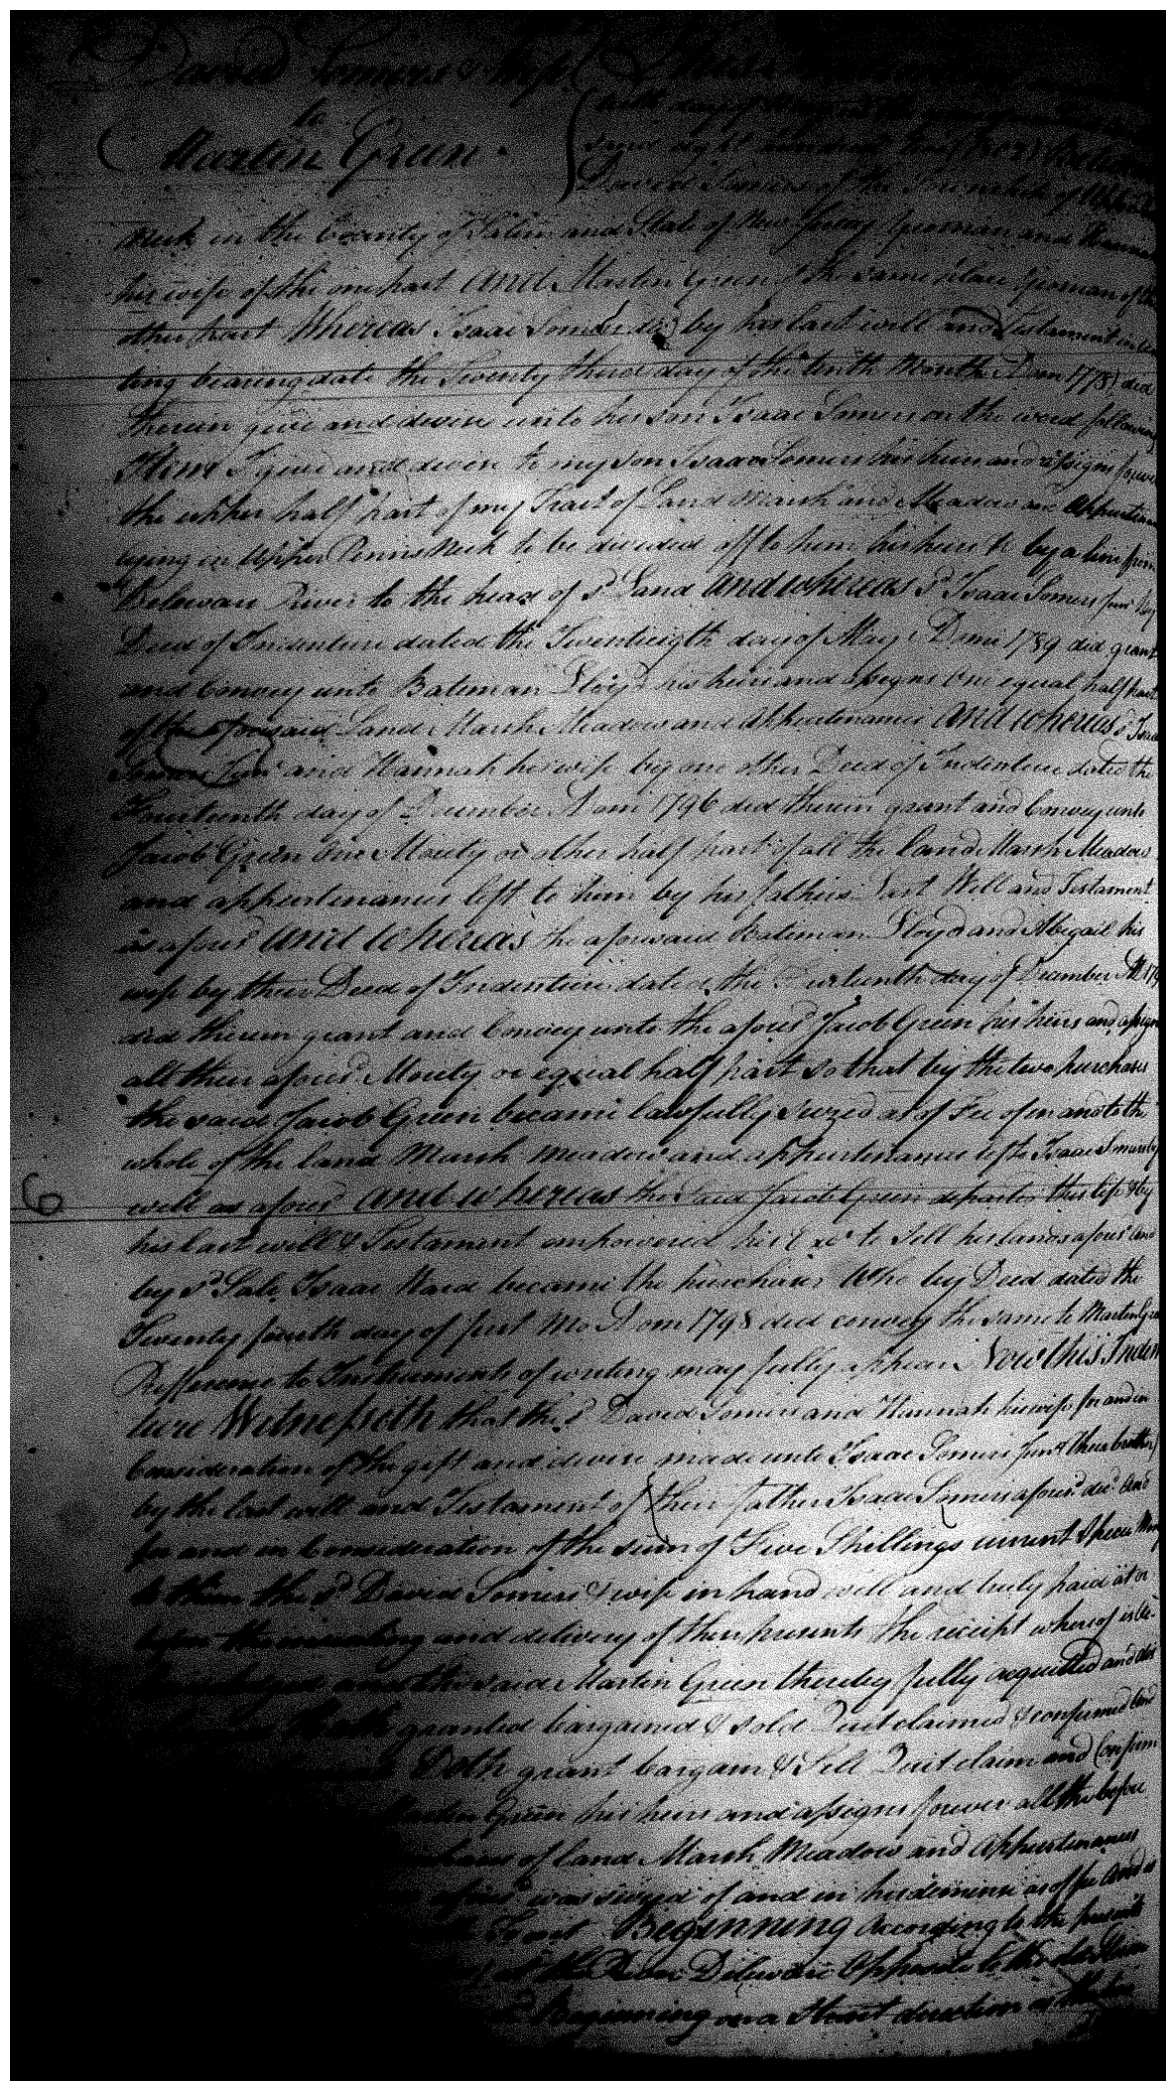 David Somers & Wife
to
Martin Green
This
David Somers of the Township of
Neck in the County of Salem and State of New Jersey Yeoman and Hannah
his wife of the one part And Martin Green of the same place Yeoman of the
other part Whereas Isaac Somers by his last will and Testament in
ting bearing date the Twenty third day of the tenth Month Dom 1778 did
therein give and devise unto his son Isaac Somers in the word following
Item I give and devise to my son Isaac Somers his heirs and assigns forever
the upper half part of my Tract of Land Marsh and Meadow and
lying in Upper Penns Neck to be divided off to him his heirs &c by a line from
Delaware River to the head of sd Land And whereas sd Isaac Somers Junr by
Deed of Indenture dated the Twentieth day of May Domi 1789 did grant
and Convey unto Bateman Lloyd his heirs and assigns One equal half part
of the aforesaid Land Marsh Meadow and Appurtenances And whereas sd Isaac
Somers Junr and Hannah his wife by one other Deed of Indenture dated the
Fourteenth day of December Dom 1796 did therein grant and Convey unto
Jacob Green One Moiety or other half part of all the land Marsh Meadow
and appurtenances left to him by his fathers Last Will and Testament
as aforesd And whereas the aforesaid Bateman Lloyd and Abigail his
wife by their Deed of Indenture dated the day of December
did therein grant and Convey unto the aforesd Jacob Green his heirs and assigns
all their aforesd Moiety or equal half part so that by the two purchases
the said Jacob Green became lawfully seized as of Fee of in and to the
whole of the land Marsh meadow and appurtenances left Isaac Somers by
will as aforesd And whereas the Said Jacob Green departed this life & by
his last will & Testament empowered his Exrs to Sell his lands aforesd And
by sd Sale Isaac Ward became the purchaser Who by Deed dated the
Twenty fourth day of first Mo Dom 1798 did convey the same to Martin Green
Refference to Instruments of writing may fully appear Now this Inden
ture Witnesseth that the sd David Somers and Hannah his wife for and in
Consideration of the gift and devise made unto Isaac Somers Junr their brother
by the last will and Testament of their father Isaac Somers aforesd decd And
for and in Consideration of the sum of Five Shillings current Specie Money
to them the sd David Somers & wife in hand well and truly paid at or
before the ensealing and delivery of these presents the receipt whereof is
the said Martin Green thereby fully acquitted and dis
Hath granted bargained & sold Quit claimed & confirmed And
Doth grant bargain & Sell Quit claim and Confirm
Martin Green his heirs and assigns forever all the before
of land Marsh Meadow and Appurtenances
aforesd was seized of and in his demesne as of fee And is
Beginning According to the presents
at the River Delaware Opposite to the
Beginning on a Strait direction